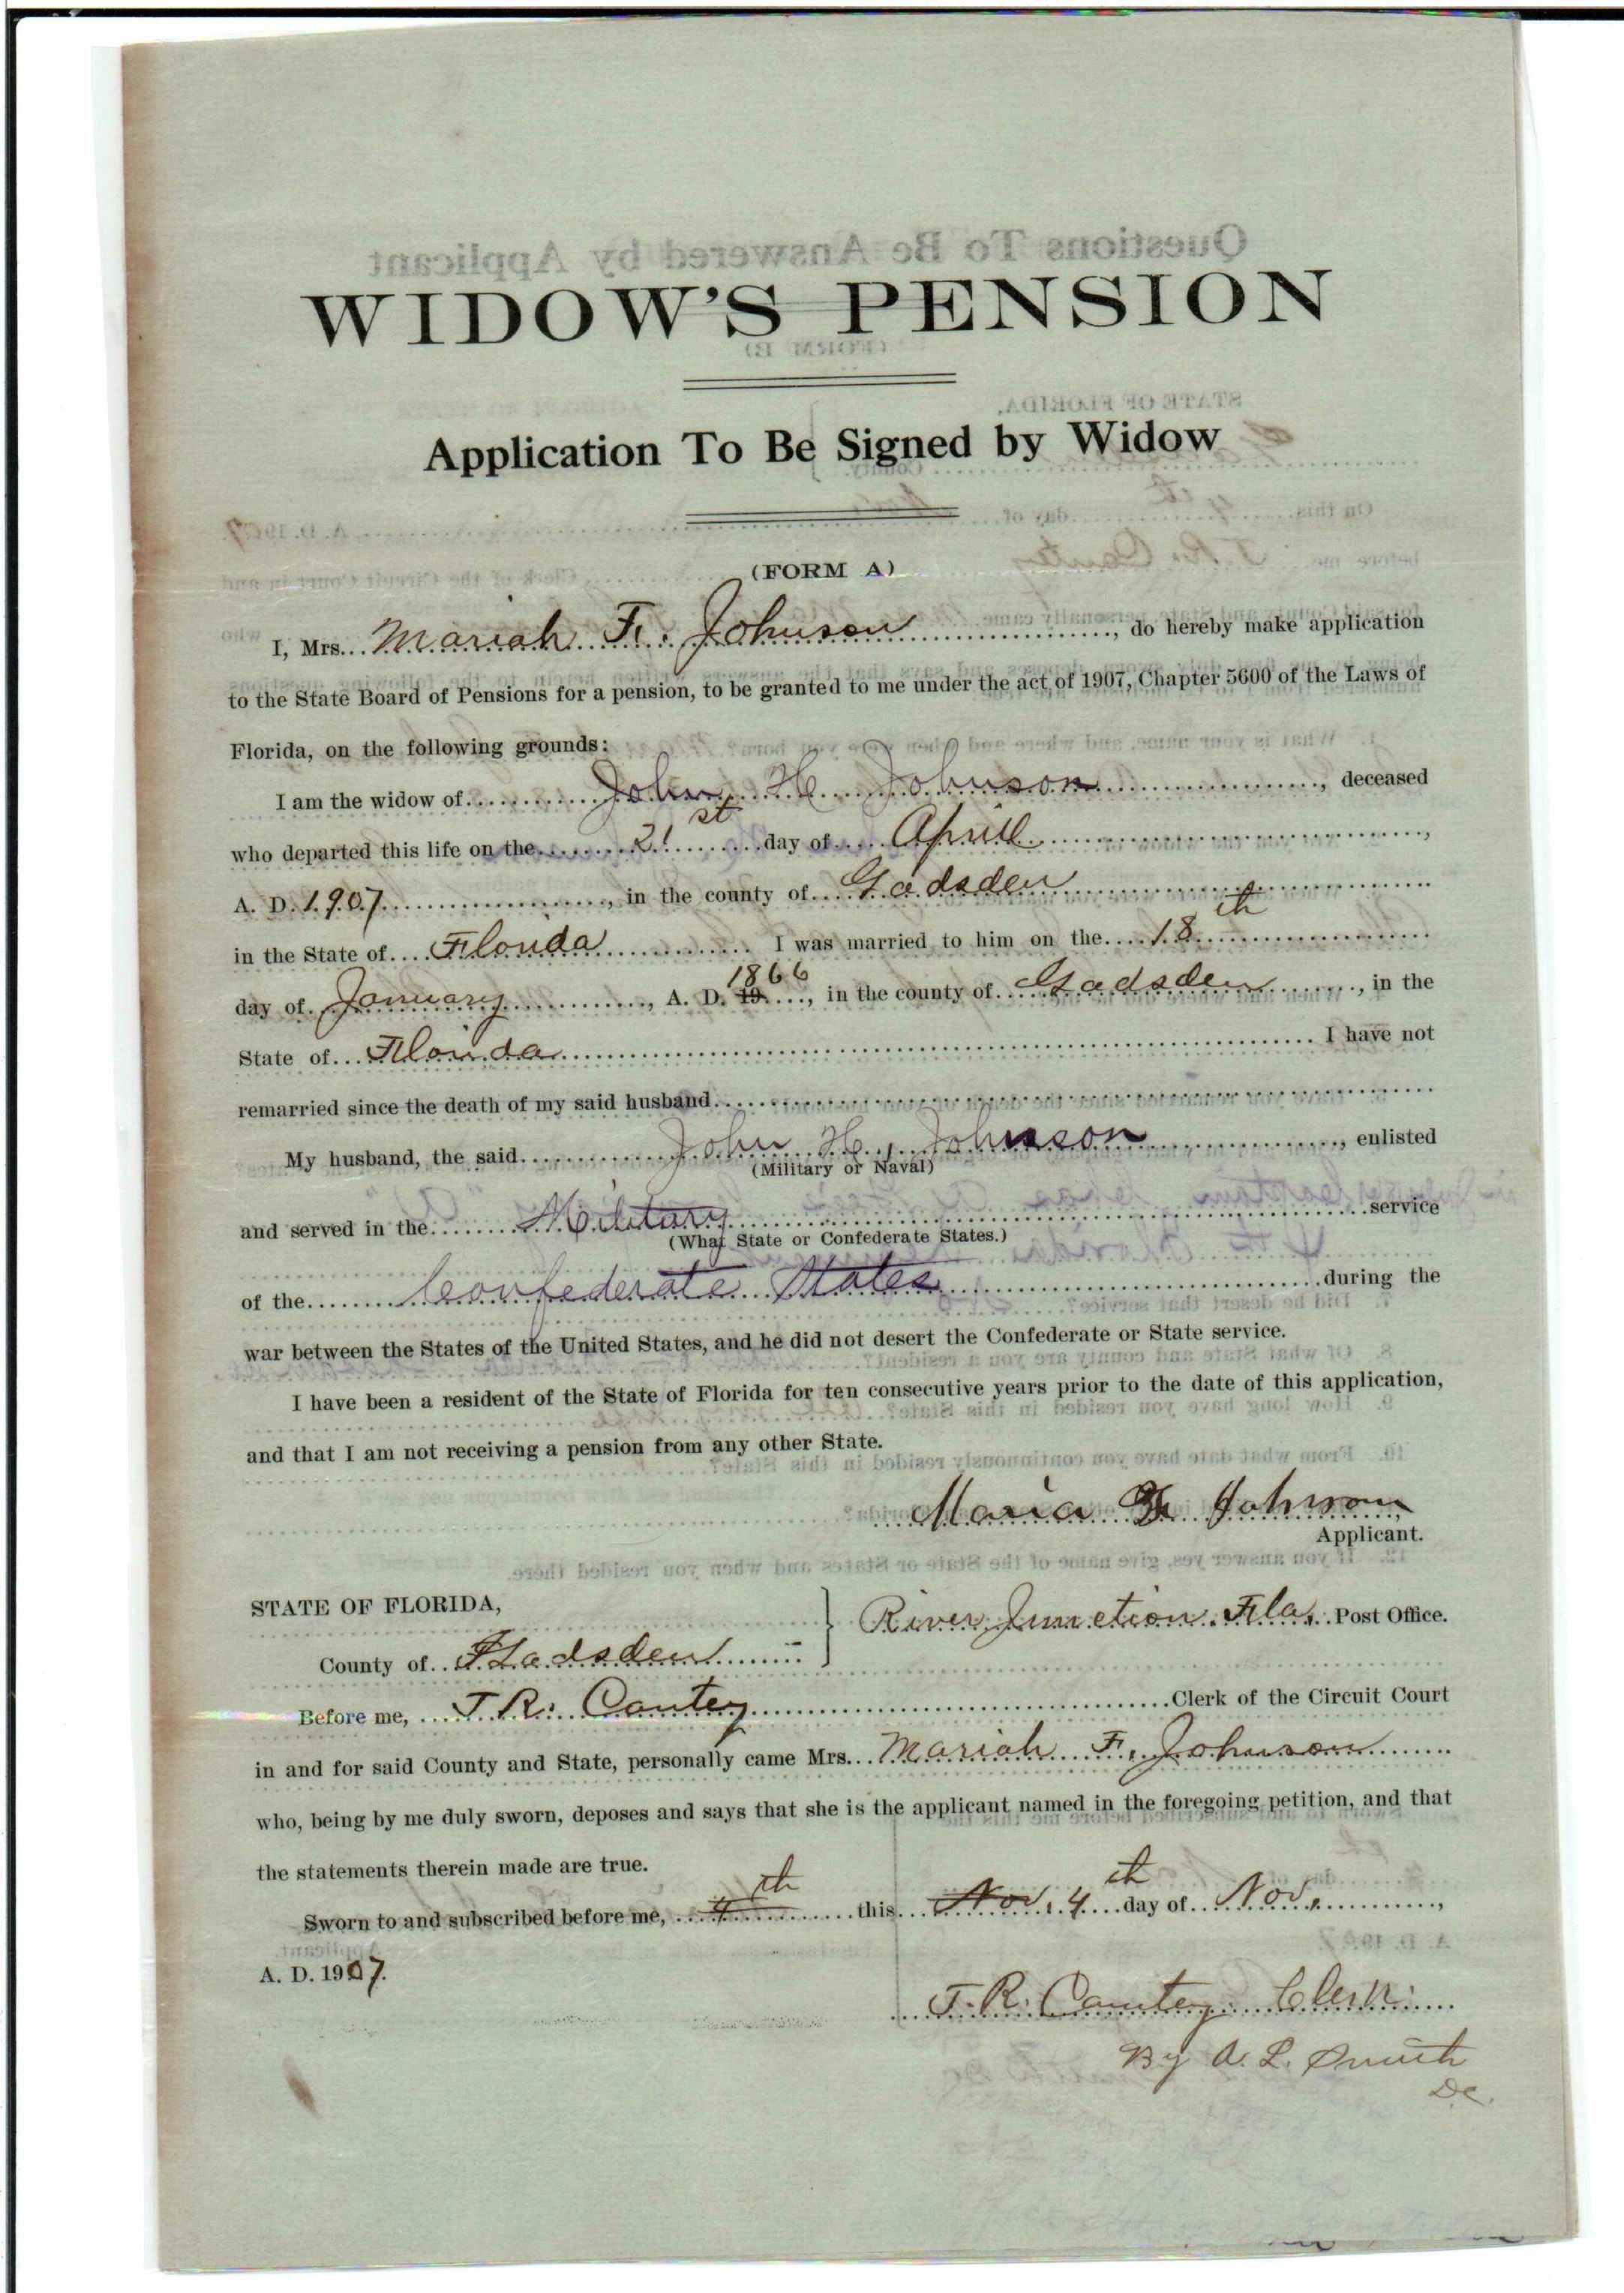 WIDOW'S PENSION
Application To Be Signed by Widow
(FORM A)
I, Mrs. Mariah F. Johnson, do hereby make application
to the State Board of Pensions for a pension, to be granted to me under the act of 1907, Chapter 5600 of the Laws of
Florida, on the following grounds:
I am the widow of John H Johnson, deceased
who departed this life on the 21st day of April,
A. D. 1907, in the county of Gadsden
in the State of Florida I was married to him on the 18th
day of January, A. D. 19 1866, in the county of Gadsden, in the
State of Florida I have not
remarried since the death of my said husband
My husband, the said John H. Johnson, enlisted
(Military or Naval)
and served in the Military service
(What State or Confederate States.)
of the Confederate States during the
war between the States of the United States, and he did not desert the Confederate or State service.
I have been a resident of the State of Florida for ten consecutive years prior to the date of this application,
and that I am not receiving a pension from any other State.
Maria F Johnson
Applicant.
STATE OF FLORIDA,
River Junction, Fla, Post Office.
County of Gadsden
Before me, J. R. Cantey Clerk of the Circuit Court
in and for said County and State, personally came Mrs. Mariah F. Johnson
who, being by me duly sworn, deposes and says that she is the applicant named in the foregoing petition, and that
the statements therein made are true.
Sworn to and subscribed before me, 4th this Nov. 4th day of Nov.,
A. D. 1907.
J. R. Cantey Clerk
By A. L. Smith
D.C.